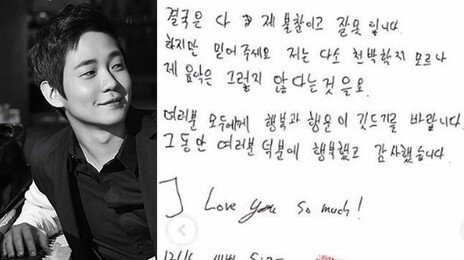 결국은 다 제 불찰이고 잘못 입니다.
하지만 믿어주세요 저는 다소 천박할지 모르나
제 음악은 그렇지 않다는 것을요.
여러분 모두에게 행복과 행운이 깃드기를 바랍니다.
그동안 여러분 덕분에 행복했고 감사했습니다.
I Love you so much!